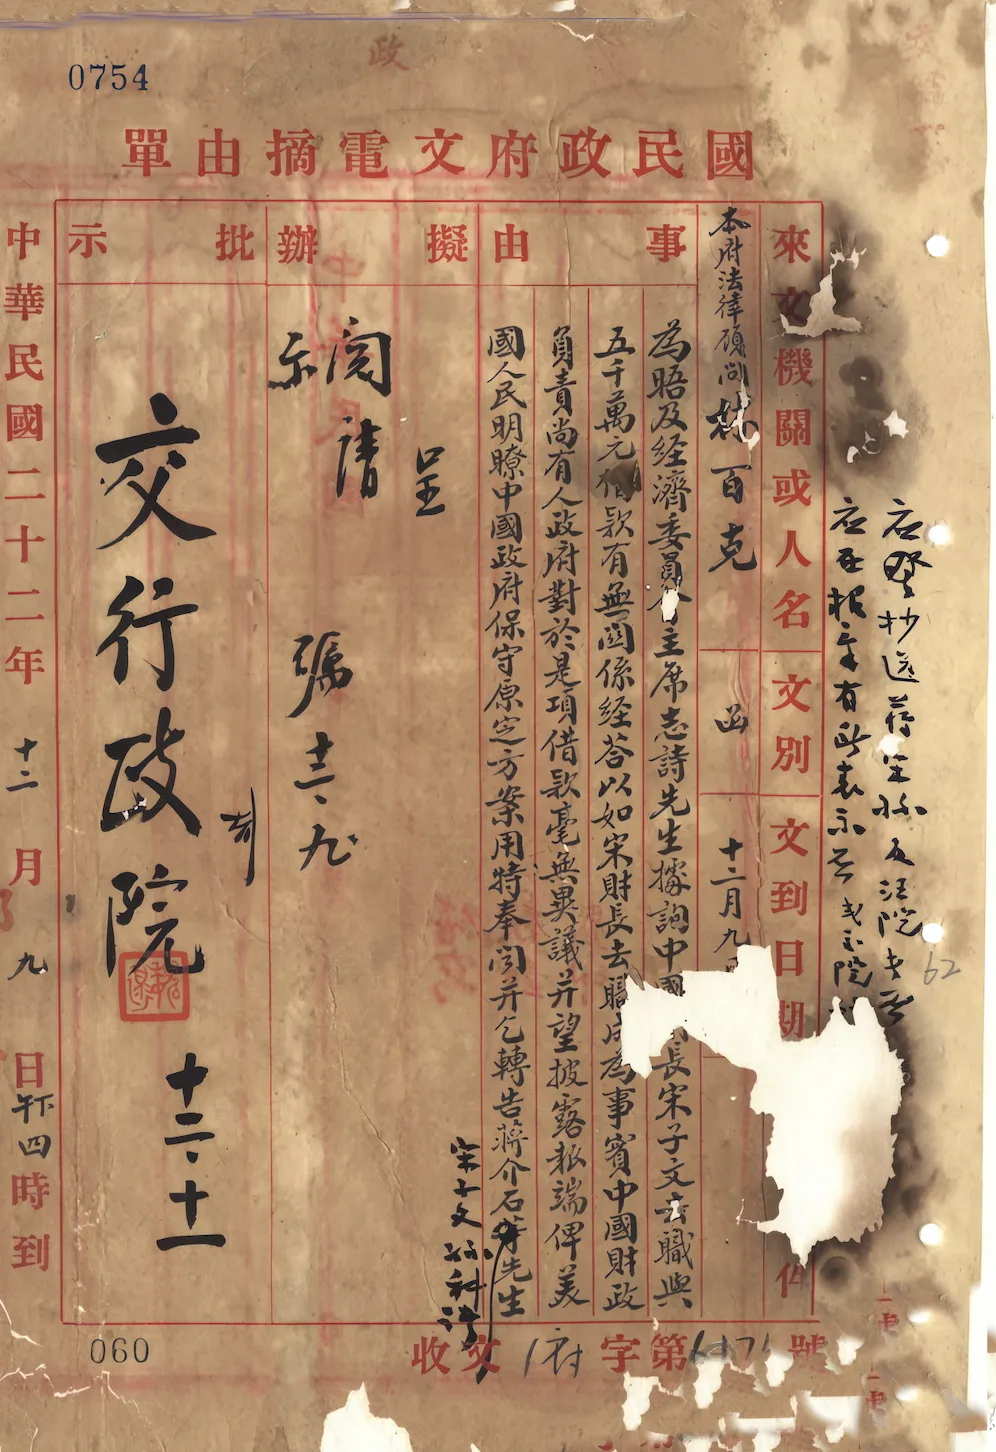 0754
政
國民政府文電摘由單
來文機關或人名
文別
文到日期
件
本府法律顧問林百克
函
十二月九
事由
為晤及經濟委員會主席志詩先生據詢中國長宋子文去職與
五千萬元借款有無關係經答以如宋財長去職成為事實中國財政
負責尚有人政府對於是項借款毫無異議并望披露報端俾美
國人民明瞭中國政府保守原定方案用特奉聞并乞轉告蔣介石等先生
宋子文孫科
擬辦
呈
閱請
示
十二、九
批示
交行政院
十二、十一
應登抄送蔣宋孫及汪院長
應否報章有此表示否
收文 府字第 號
中華民國二十二年十二月九日午下四時到
060
62